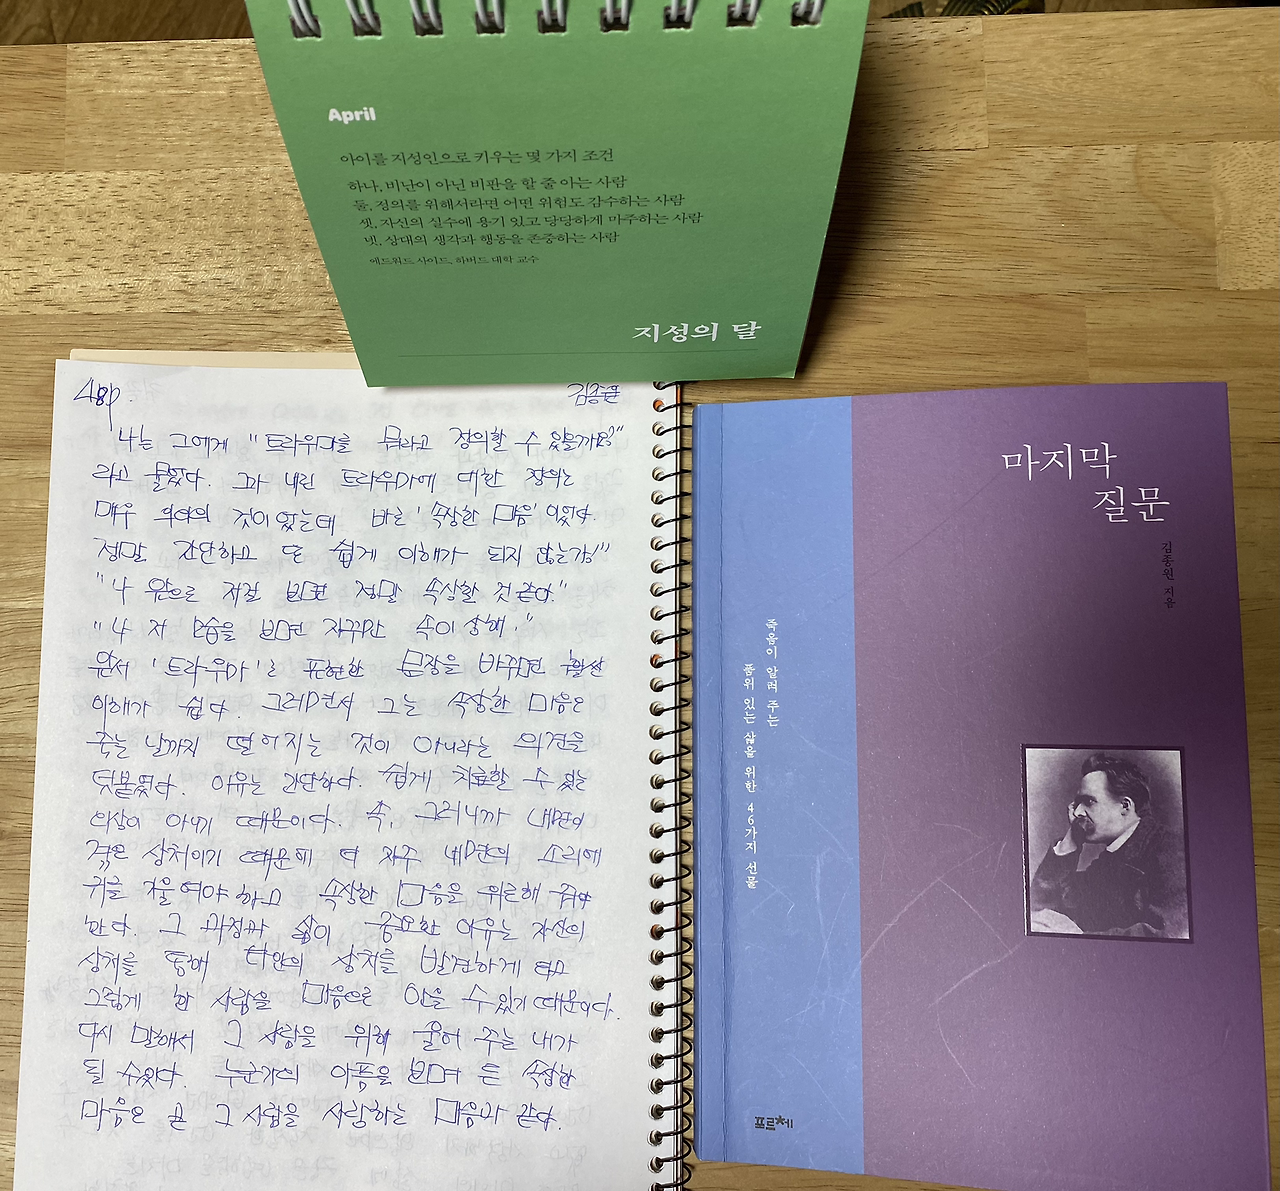 April
아이를 지성인으로 키우는 몇 가지 조건
하나, 비난이 아닌 비판을 할 줄 아는 사람
둘, 정의를 위해서라면 어떤 위험도 감수하는 사람
셋, 자신의 실수에 용기 있고 당당하게 마주하는 사람
넷, 상대의 생각과 행동을 존중하는 사람
에드워드 사이드, 하버드 대학 교수
지성의 달
48p
김종원
나는 그에게 "트라우마를 뭐라고 정의할 수 있을까요?"
라고 물었다. 그가 내린 트라우마에 대한 정의는
매우 의외의 것이었는데 바로 '속상한 마음'이었다.
정말 간단하고 또 쉽게 이해가 되지 않는가!"
"나 앞으로 저걸 보면 정말 속상할 것 같아."
"나 저 모습을 보면 자꾸만 속이 상해."
앞서 '트라우마'로 표현한 문장을 바꾸면 훨씬
이해가 쉽다. 그러면서 그는 속상한 마음은
죽는 날까지 떨어지는 것이 아니라는 의견을
덧붙였다. 이유는 간단하다. 쉽게 치료할 수 있는
외상이 아니기 때문이다. 즉, 그러니까 내면이
겪은 상처이기 때문에 더 자주 내면의 소리에
귀를 기울여야 하고 속상한 마음을 위로해 줘야
한다. 그 과정과 삶이 중요한 이유는 자신의
상처를 통해 타인의 상처를 발견하게 되고
그렇게 한 사람을 마음으로 안을 수 있기 때문이다.
다시 말해서 그 사람을 위해 울어 주는 내가
될 수 있다. 누군가의 아픔을 보며 든 속상한
마음은 곧 그 사람을 사랑하는 마음과 같다.
마지막
질문
김종원 지음
죽음이 알려 주는
품위 있는 삶을 위한 46가지 선물
프르체